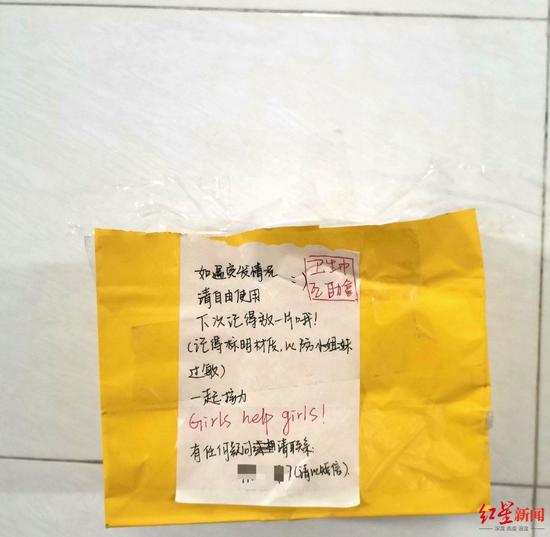 如遇突发情况 :)
请自由使用
卫生巾
互助盒
下次记得放一片哦!
(记得标明材质,以防小姐妹
过敏)
一起接力
Girls help girls!
有任何疑问请联系
(请以短信)
红星新闻
深度 态度 温度